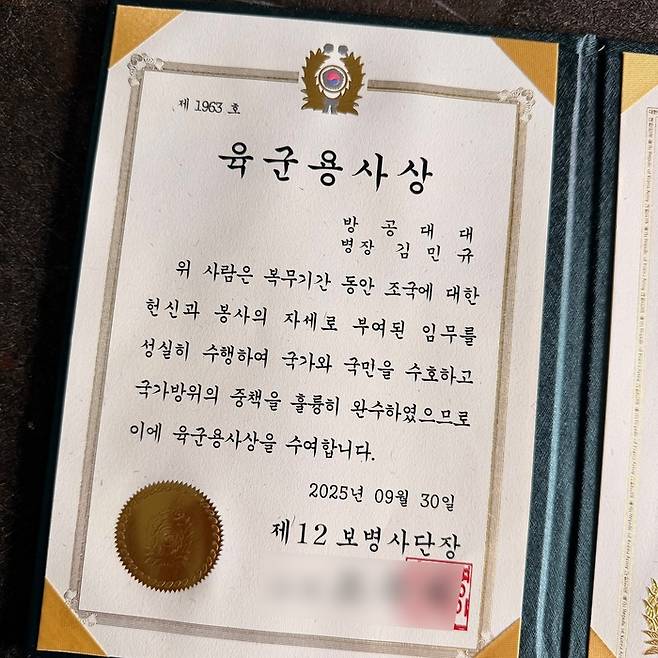 제 1963 호
육군용사상
방공대대
병장 김민규
위 사람은 복무기간 동안 조국에 대한
헌신과 봉사의 자세로 부여된 임무를
성실히 수행하여 국가와 국민을 수호하고
국가방위의 중책을 훌륭히 완수하였으므로
이에 육군용사상을 수여합니다.
2025년 09월 30일
제12보병사단장